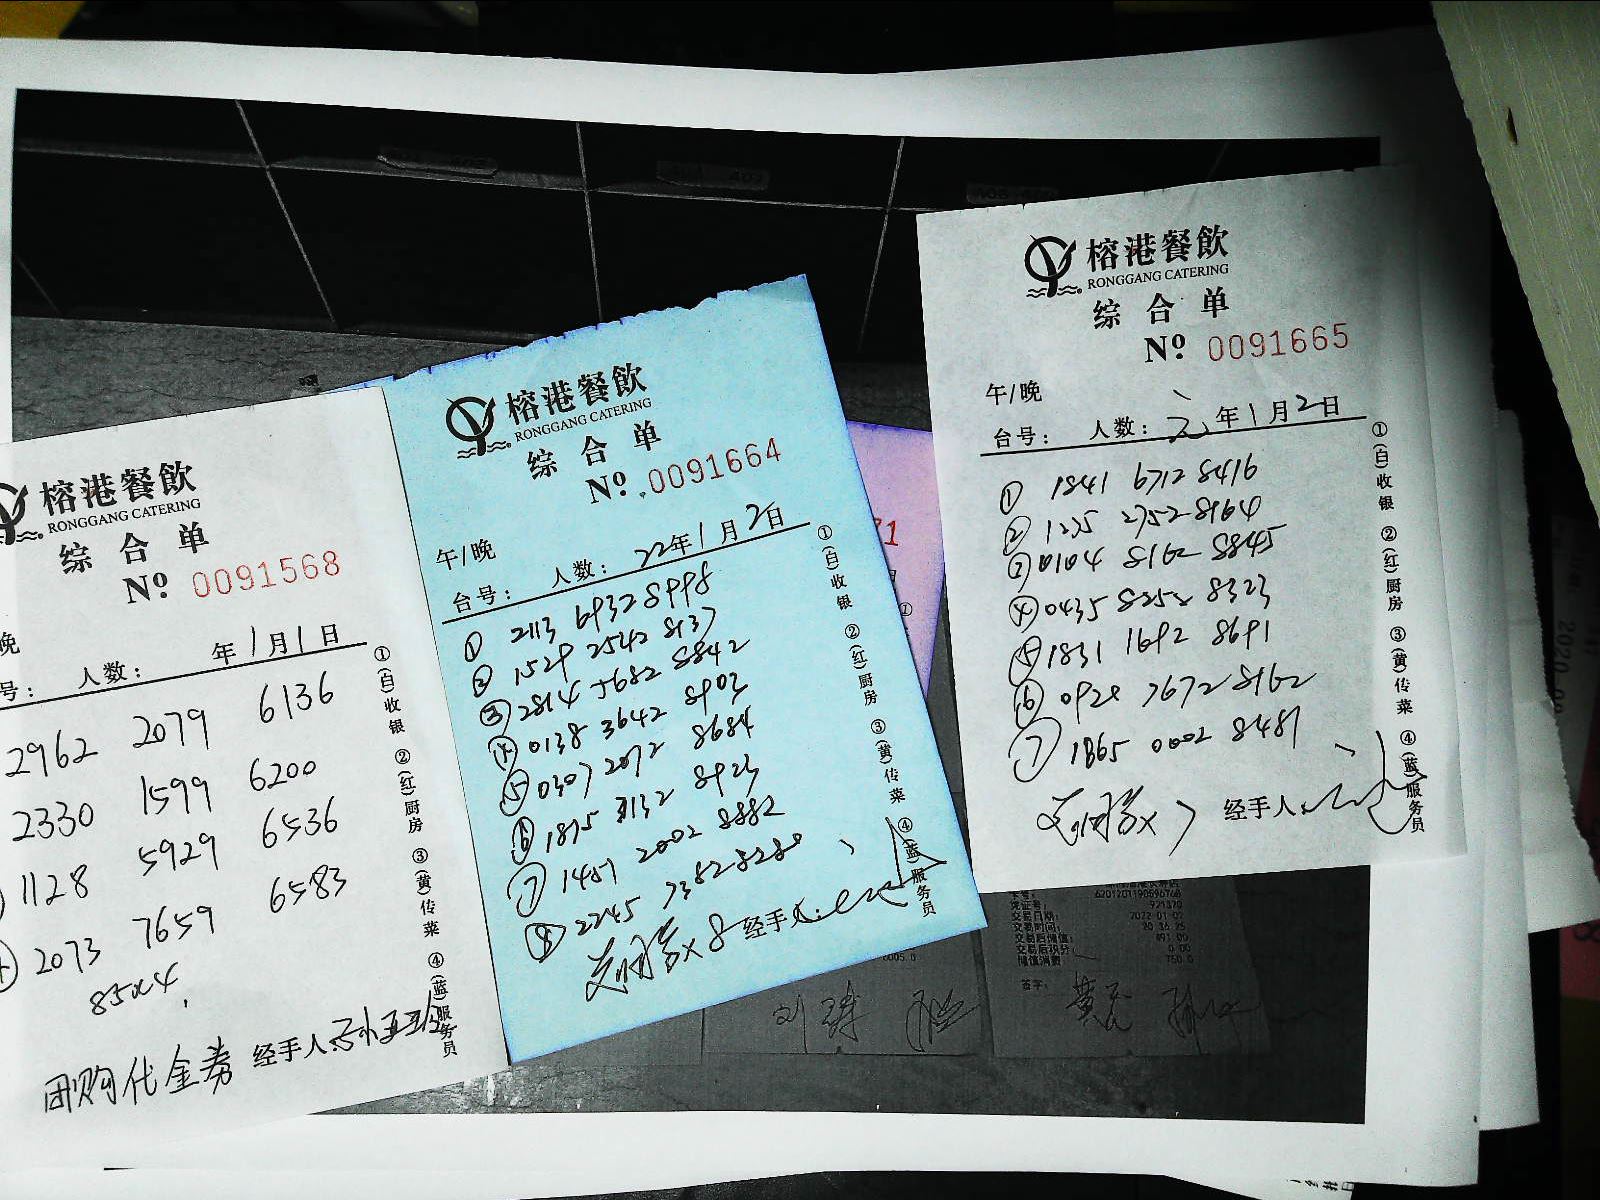 榕港餐飲
RONGGANG CATERING
综合单
Nº 0091568
晚
号： 人数： 年1月1日
2962 2079 6136
2330 1599 6200
1128 5929 6536
2073 7659 6583
85x4
团购代金券 经手人：
①(白)收银 ②(红)厨房 ③(黄)传菜 ④(蓝)服务员
榕港餐飲
RONGGANG CATERING
综合单
Nº 0091664
午/晚
台号： 人数： 22年1月2日
① 2113 6932 8998
② 1529 2542 8137
③ 2814 5682 8842
④ 0138 3642 8903
⑤ 0307 2072 8684
⑥ 1875 3132 8923
⑦ 1457 2002 8882
⑧ 2245 7382 8280
x8 经手人：
①(白)收银 ②(红)厨房 ③(黄)传菜 ④(蓝)服务员
榕港餐飲
RONGGANG CATERING
综合单
Nº 0091665
午/晚
台号： 人数： 年1月2日
① 1841 6712 8416
② 1235 2752 8164
③ 0104 8162 8845
④ 0435 8252 8323
⑤ 1831 1692 8691
⑥ 0928 7672 8162
⑦ 1865 0002 8481
x7 经手人：
①(白)收银 ②(红)厨房 ③(黄)传菜 ④(蓝)服务员
卡号： 6201201190596768
凭证号： 921370
交易日期： 2022-01-02
交易时间： 20:36:25
交易后储值： 491.00
交易后积分： 0.00
储值消费 750.0
签字：